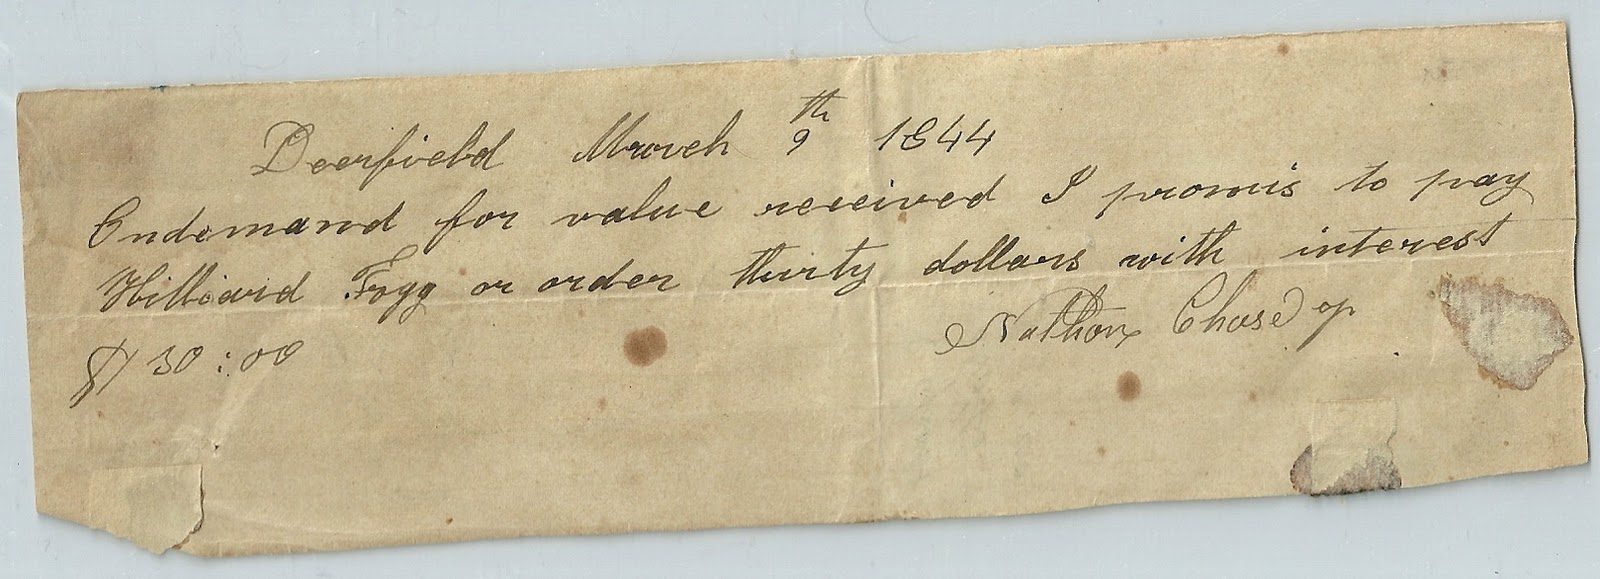 Deerfield March 9th 1844
Ondemand for value received I promis to pay
Hilliard Fogg or order thirty dollars with interest
Nathan Chase
$ 30:00